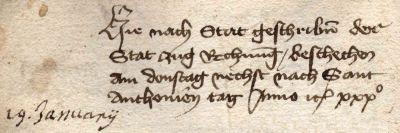 Hie nach Stat geschribn der
Stat Zug Rechnung / beschechen
Am donstag nechst nach Sant
Anthonien tag Anno xxxº
19. Januarij